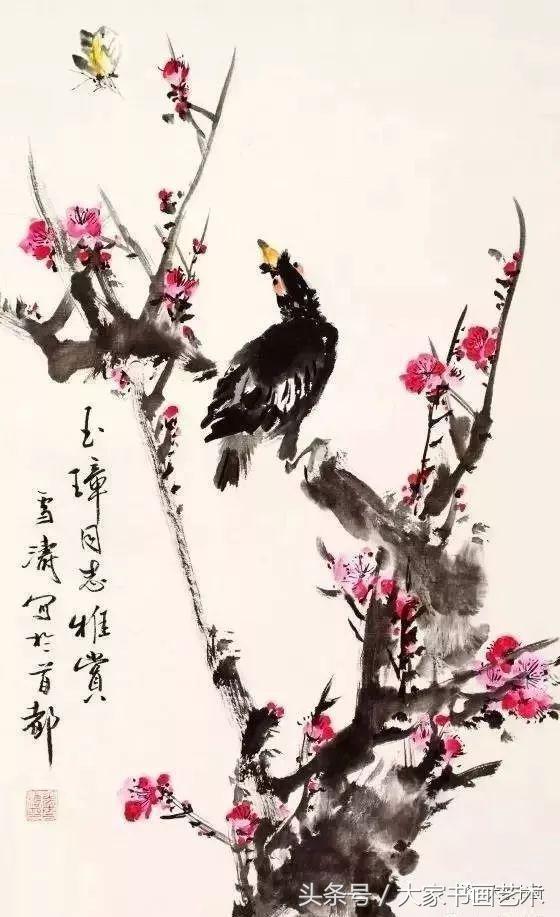 玉璋同志雅赏
雪涛写于首都
头条号／大家书画艺术